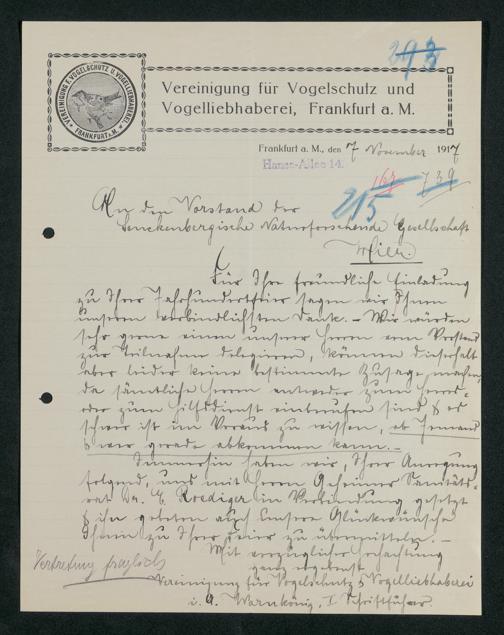 293
VEREINIGUNG F. VOGELSCHUTZ U. VOGELLIEBHABEREI,
FRANKFURT a. M.
Vereinigung für Vogelschutz und
Vogelliebhaberei, Frankfurt a. M.
Frankfurt a. M., den 7 November 1917
Hansa-Allee 14.
215
739
An den Vorstand der
Senckenbergische Naturforschende Gesellschaft
Hier.
Für Ihre freundliche Einladung
zu Ihrer Jahrhundertfeier sagen wir Ihnen
unseren verbindlichsten Dank. – Wir würden
sehr gerne einen unserer Herren vom Vorstand
zur Teilnahme delegieren, können dieserhalb
aber leider keine bestimmte Zusage machen,
da sämtliche Herren entweder zum Heeres-
oder zum Hilfsdienst einberufen sind & es
schwer ist im Voraus zu wissen, ob Jemand
& wer gerade abkommen kann. –
Immerhin haben wir, Ihrer Anregung
folgend, uns mit Herrn Geheimer Sanitäts-
rat Dr. E. Roediger in Verbindung gesetzt
& ihn gebeten auch unsere Glückwünsche
Ihnen zu Ihrer Feier zu übermitteln. –
Mit vorzüglicher Hochachtung
ganz ergebenst
Vertretung fraglich
Vereinigung für Vogelschutz & Vogelliebhaberei
i. A. Warnkönig, I Schriftführer.